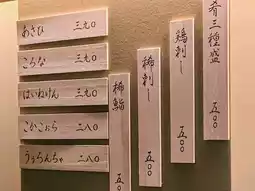 あさひ 三九〇
ころな 三九〇
はいねけん 三九〇
こかこぉら 二八〇
うぅろんちゃ 二八〇
肴三種盛 五〇〇
鶏刺し 五〇〇
刺し 五〇〇
鮨 五〇〇